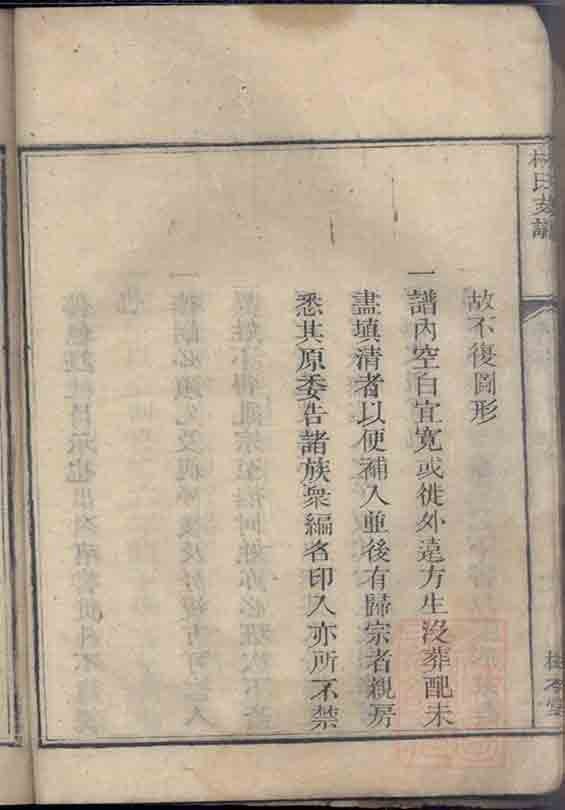 故不復圖形
一譜內空白宜寬或徙外遠方生沒葬配未
盡填清者以便補入並後有歸宗者親房
悉其原委告諸族衆編名印入亦所不禁